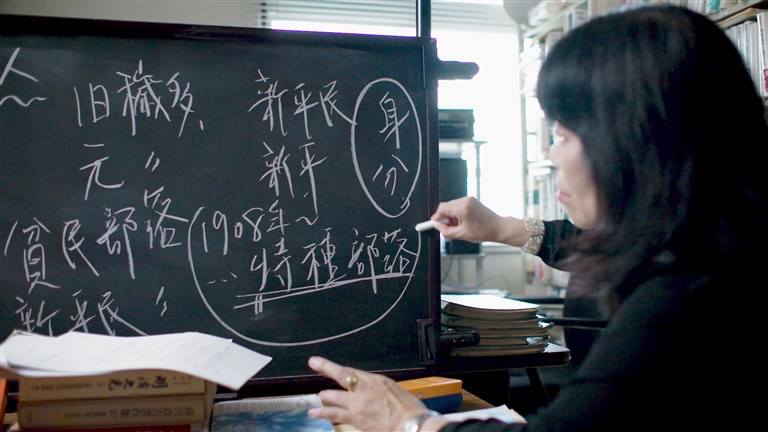 人〜
旧穢多、
元 〃
貧民部落
新平民 〃
新平民
新平
身分
1908年〜
… 特種部落
明治之光